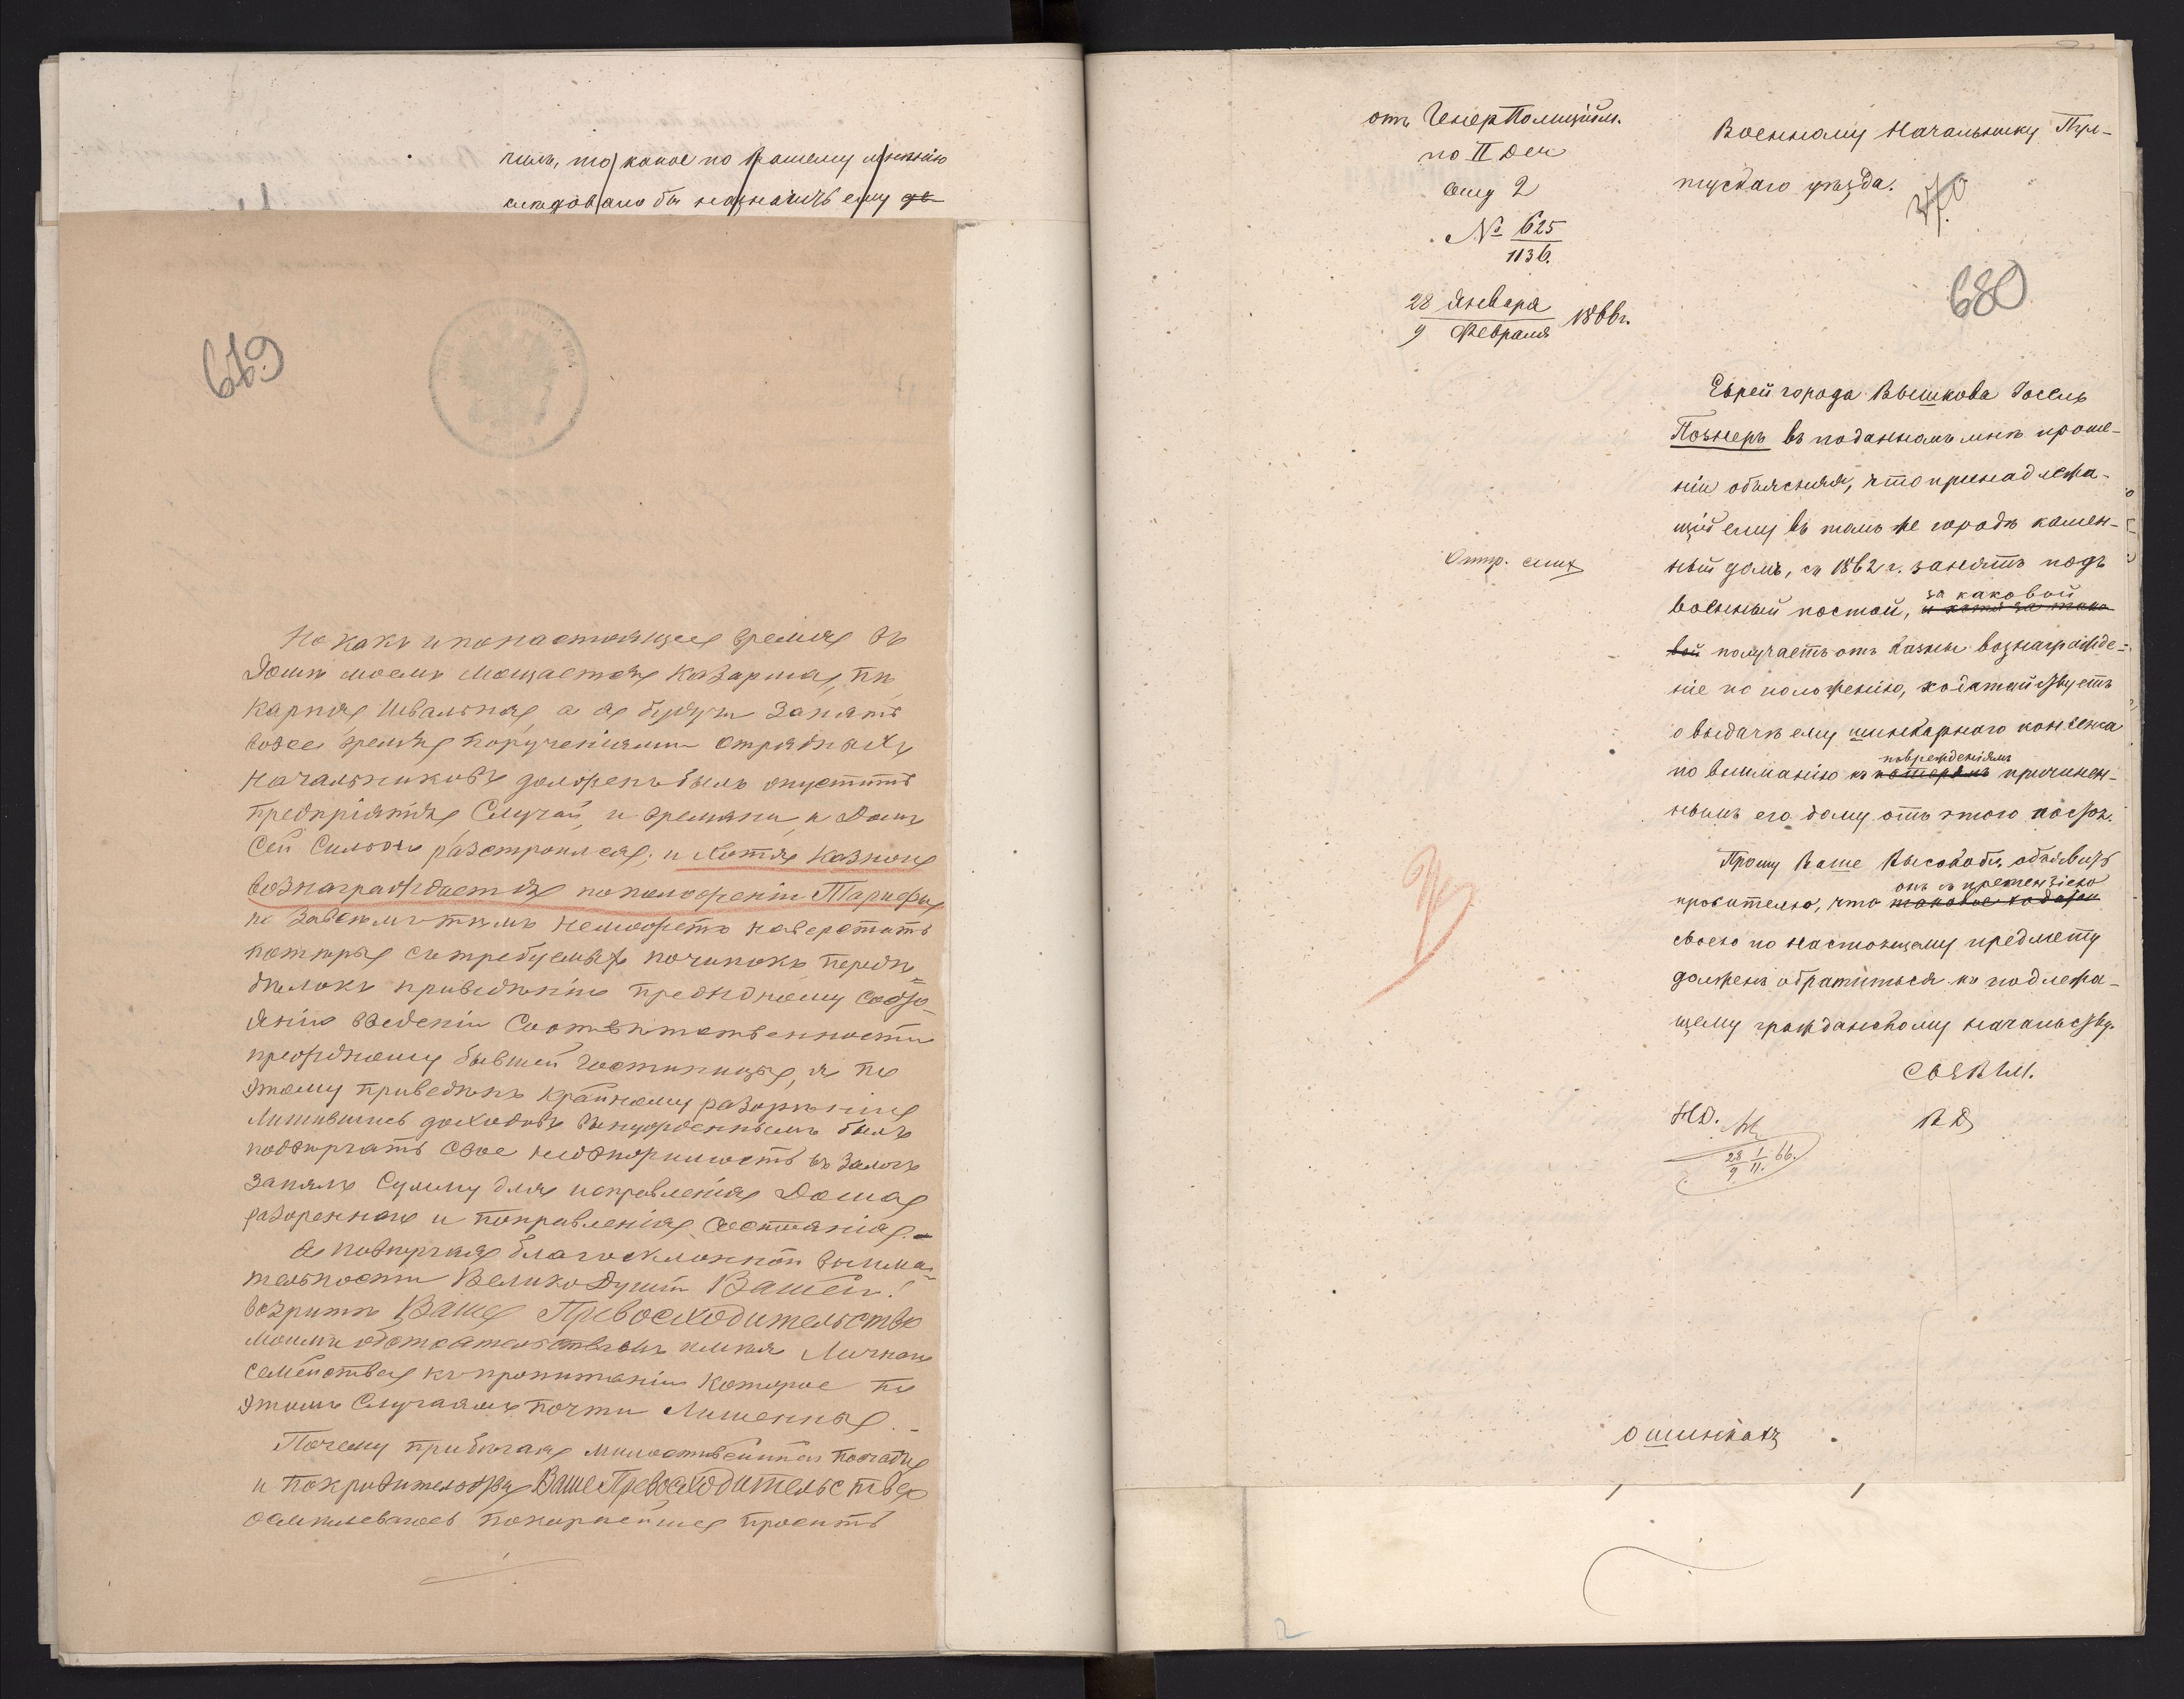 чилъ, то какое по Вашему мнѣнію
слѣдовало бы назначить ему де-
679
Но какъ и по настоящее время въ
Домѣ моемъ мещается Казарма, пѣ
карня, Швальная, а я будучи занятъ
во все время порученіями отрядныхъ
начальниковъ долженъ былъ опустить
предпріятія, Случай, и времяни, и Домъ
Сей Сильно разстроился; и хотя Казною
вознаграждается по положеніи Тарифы
но за всѣмъ тѣмъ неможетъ наверстить
потыры съ требуемыхъ починокъ передѣ=
дѣлокъ приведѣнію преждному состо-
янію въ
прождному бывшей Гостинницы, я по
этому приведѣнъ крайному разорѣнію
Лишившись доходовъ вынужденнымъ былъ
подвѣргать свое недвижимость въ Залогъ
занялъ Сумму для исправленія Дома
разореннаго и поправленія состоянія.-
Я повѣргая благосклонной внима-
тельности Великодушіи Вашей!
возрити Ваше Превосходительство
моими обстоятельствомъ имѣя Личною
семейства къ пропитаніи которое по
этимъ Случаямъ почти Лишенны.-
Почему прибегая милостивейшей пощады
и покровительству Ваше Превосходительство
осмѣливаюсь покорнейше просить
отъ Генер Полицейм.
по II Деч
Стд 2
№ 625
1136.
28 Января
9 Февраля 1866 г.
Военному Начальнику Пул-
тускаго уѣзда.
370
680
Еврей города Вышкова Іосель
Познеръ въ поданномъ мнѣ проше-
ніи объясняя, что принадлежа-
щій ему въ томъ же городѣ камен-
Отпр.
ный домъ, съ 1862 г. занятъ подъ
за каковой
военный постой, и хотя за тако
вой получаетъ отъ Казны вознагражде=
ніе по положенію, ходатайствуетъ
о выдачѣ ему шинкарнаго консенса
поврежденіямъ
по вниманію къ потерямъ причинен-
нымъ его дому отъ этого постоя.
Прошу Ваше Высокобл. объявить
онъ съ претензіею
просителю, что таковое ходат
своею по настоящему предмету
долженъ обратиться къ подлежа-
щему гражданскому начальству.
СОЕВИМ.
НО.
ВД
28 I 66.
9 II.
О шинкахъ
2